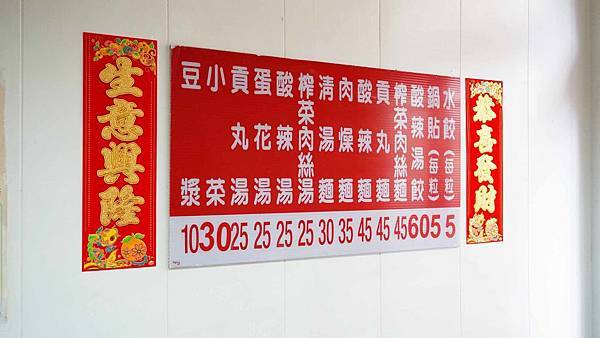 恭喜發財
水餃(每粒) 5
鍋貼(每粒) 5
酸辣湯餃 60
榨菜肉絲麵 45
貢丸麵 45
酸辣麵 45
肉燥麵 35
清湯麵 30
榨菜肉絲湯 25
酸辣湯 25
蛋花湯 25
貢丸湯 25
小菜 30
豆漿 10
生意興隆